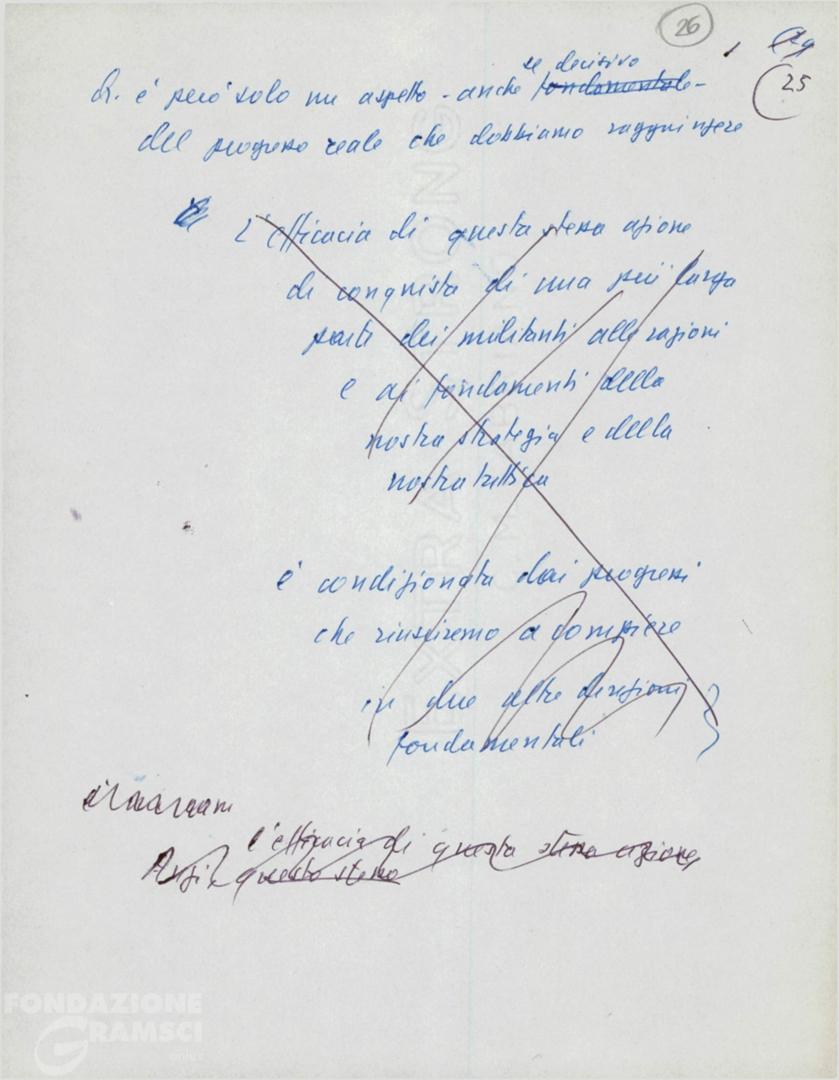 26
25
se decisivo
è però solo un aspetto - anche fondamentale -
del progresso reale che dobbiamo raggiungere
L'efficacia di questa stessa azione
di conquista di una più larga
parte dei militanti alle ragioni
e ai fondamenti della
nostra strategia e della
nostra tattica
è condizionata dai progressi
che riusciremo a compiere
in due altre direzioni
fondamentali
l'efficacia di questa stessa azione
Anzi questo stesso
EXTRA STRONG
FONDAZIONE
GRAMSCI
onlus